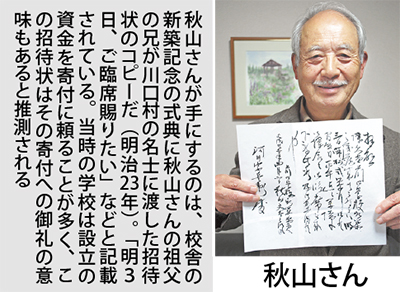 秋山さんが手にするのは、校舎の
新築記念の式典に秋山さんの祖父
の兄が川口村の名士に渡した招待
状のコピーだ（明治23年）。「明3
日、ご臨席賜りたい」などと記載
されている。当時の学校は設立の
資金を寄付に頼ることが多く、こ
の招待状はその寄付への御礼の意
味もあると推測される
秋山さん